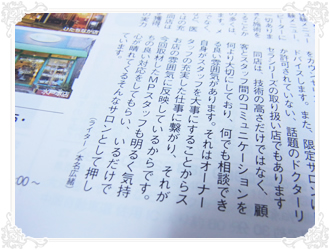 ドバイスします。また、限定サロンし
か許可されていない、話題のドクターリ
セラシリーズの取り扱い店でもあります
同店は、技術の高さだけではなく、顧
客とスタッフ間のコミュニケーションを
何より大切にしており、何でも相談でき
る良い雰囲気があります。それはオーナー
自身がスタッフを大事にすることからス
タッフの充実した仕事に繋がり、それが
お店の雰囲気に反映しているからです。
今回取材したMPスタッフも明るく気持
ちの良い対応をしてもらい、いるだけで
心が晴れてくるそんなサロンとして押し
ています。
(ライター／本名広繍)
00～